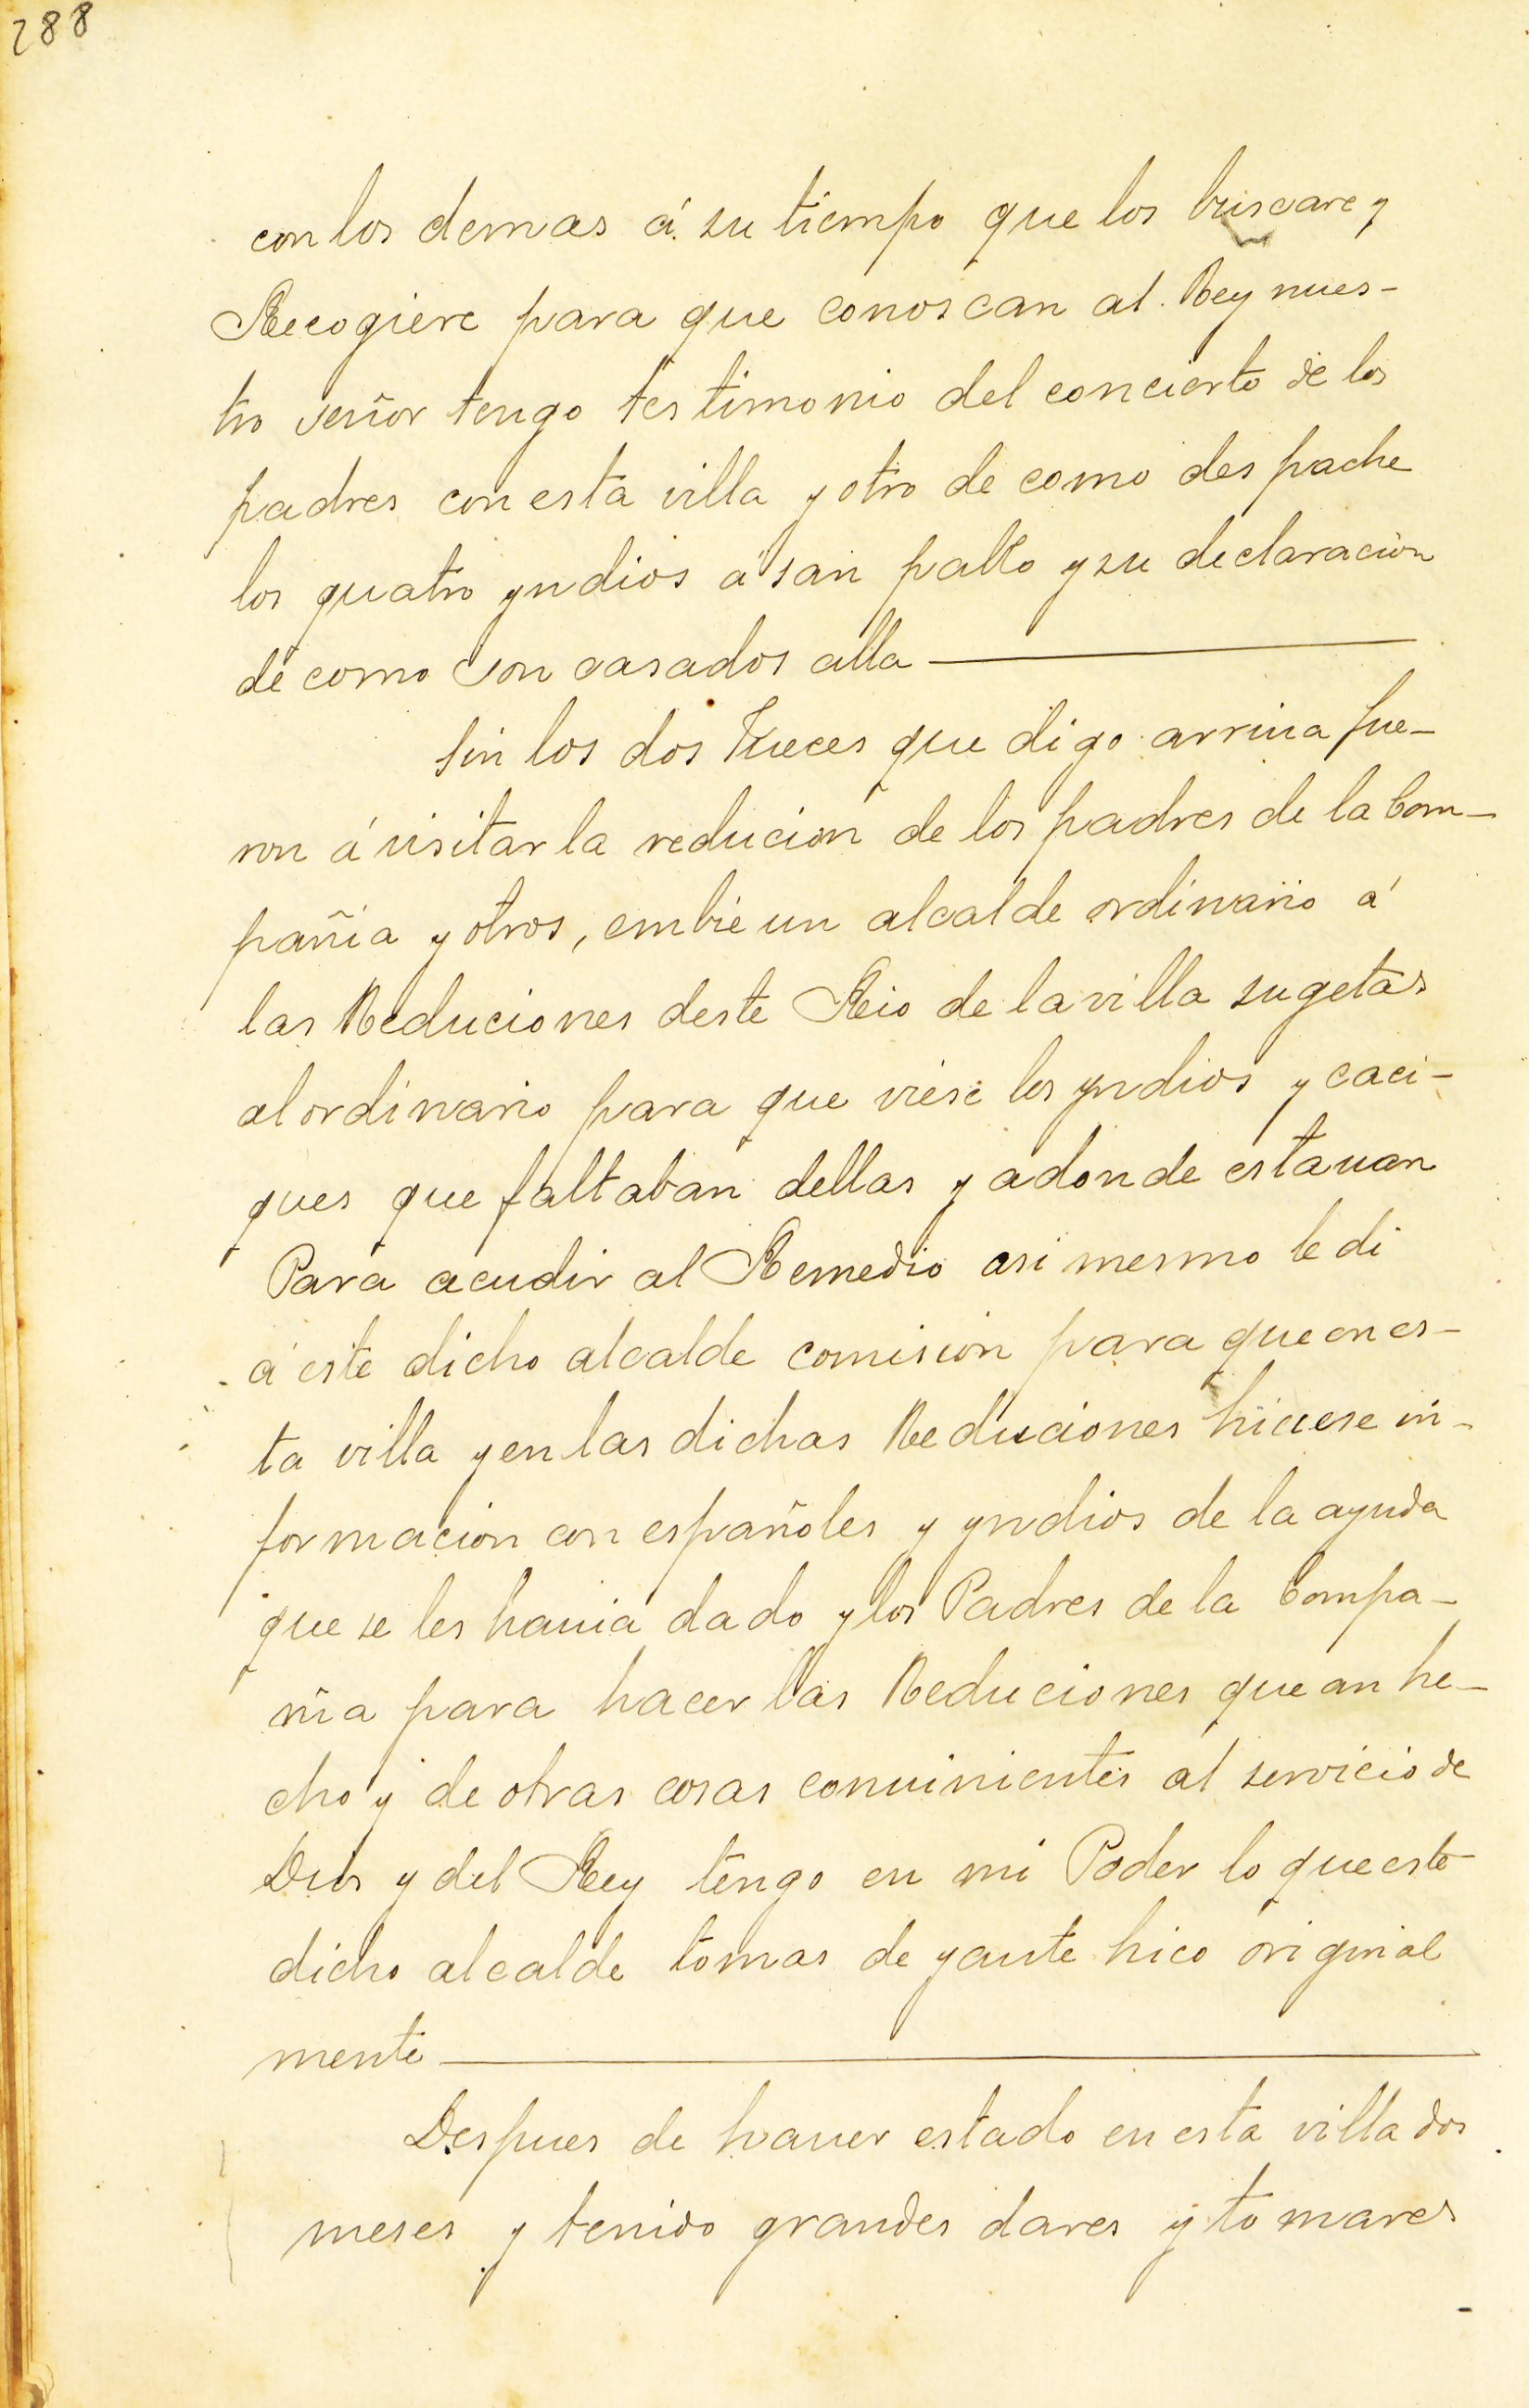 288
con los demas á su tiempo que los buscare y
Recogiere para que conoscan al Rey nues-
tro señor tengo testimonio del concierto de los
padres con esta villa y otro de como despache
los quatro yndios á san pablo y su declaración
de como son casados alla
sin los dos Jueces que digo arriua fue-
ron á visitar la reducion de los padres de la Com-
pañia y otros, embie un alcalde ordinario á
las Reduciones deste Rio de la villa sugetas
al ordinario para que viese los yndios y caci-
ques que faltaban dellas y adonde estauan
Para acudir al Remedio asi mesmo le di
á este dicho alcalde comision para que en es-
ta villa y en las dichas Reduciones hiciese in-
formacion con españoles y yndios de la ayuda
que se les hauia dado y los Padres de la Compa-
ñia para hacer las Reduciones que an he-
cho y de otras cosas conuinientes al servicio de
Dios y del Rey tengo en mi Poder lo que este
dicho alcalde tomas de yante hico original
mente
Despues de hauer estado en esta villa dos
meses y tenido grandes dares y tomares